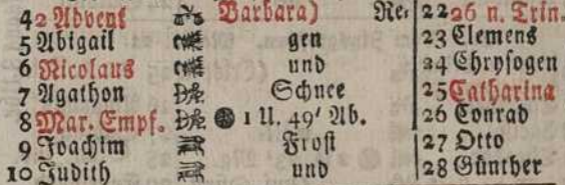 4 2 Advent Barbara) Re= 22 26 n. Trin.
5 Abigail gen 23 Clemens
6 Nicolaus und 24 Chrysogen
7 Agathon Schnee 25 Catharina
8 Mar. Empf. 1 U. 49' Ab. 26 Conrad
9 Joachim Frost 27 Otto
10 Judith und 28 Günther